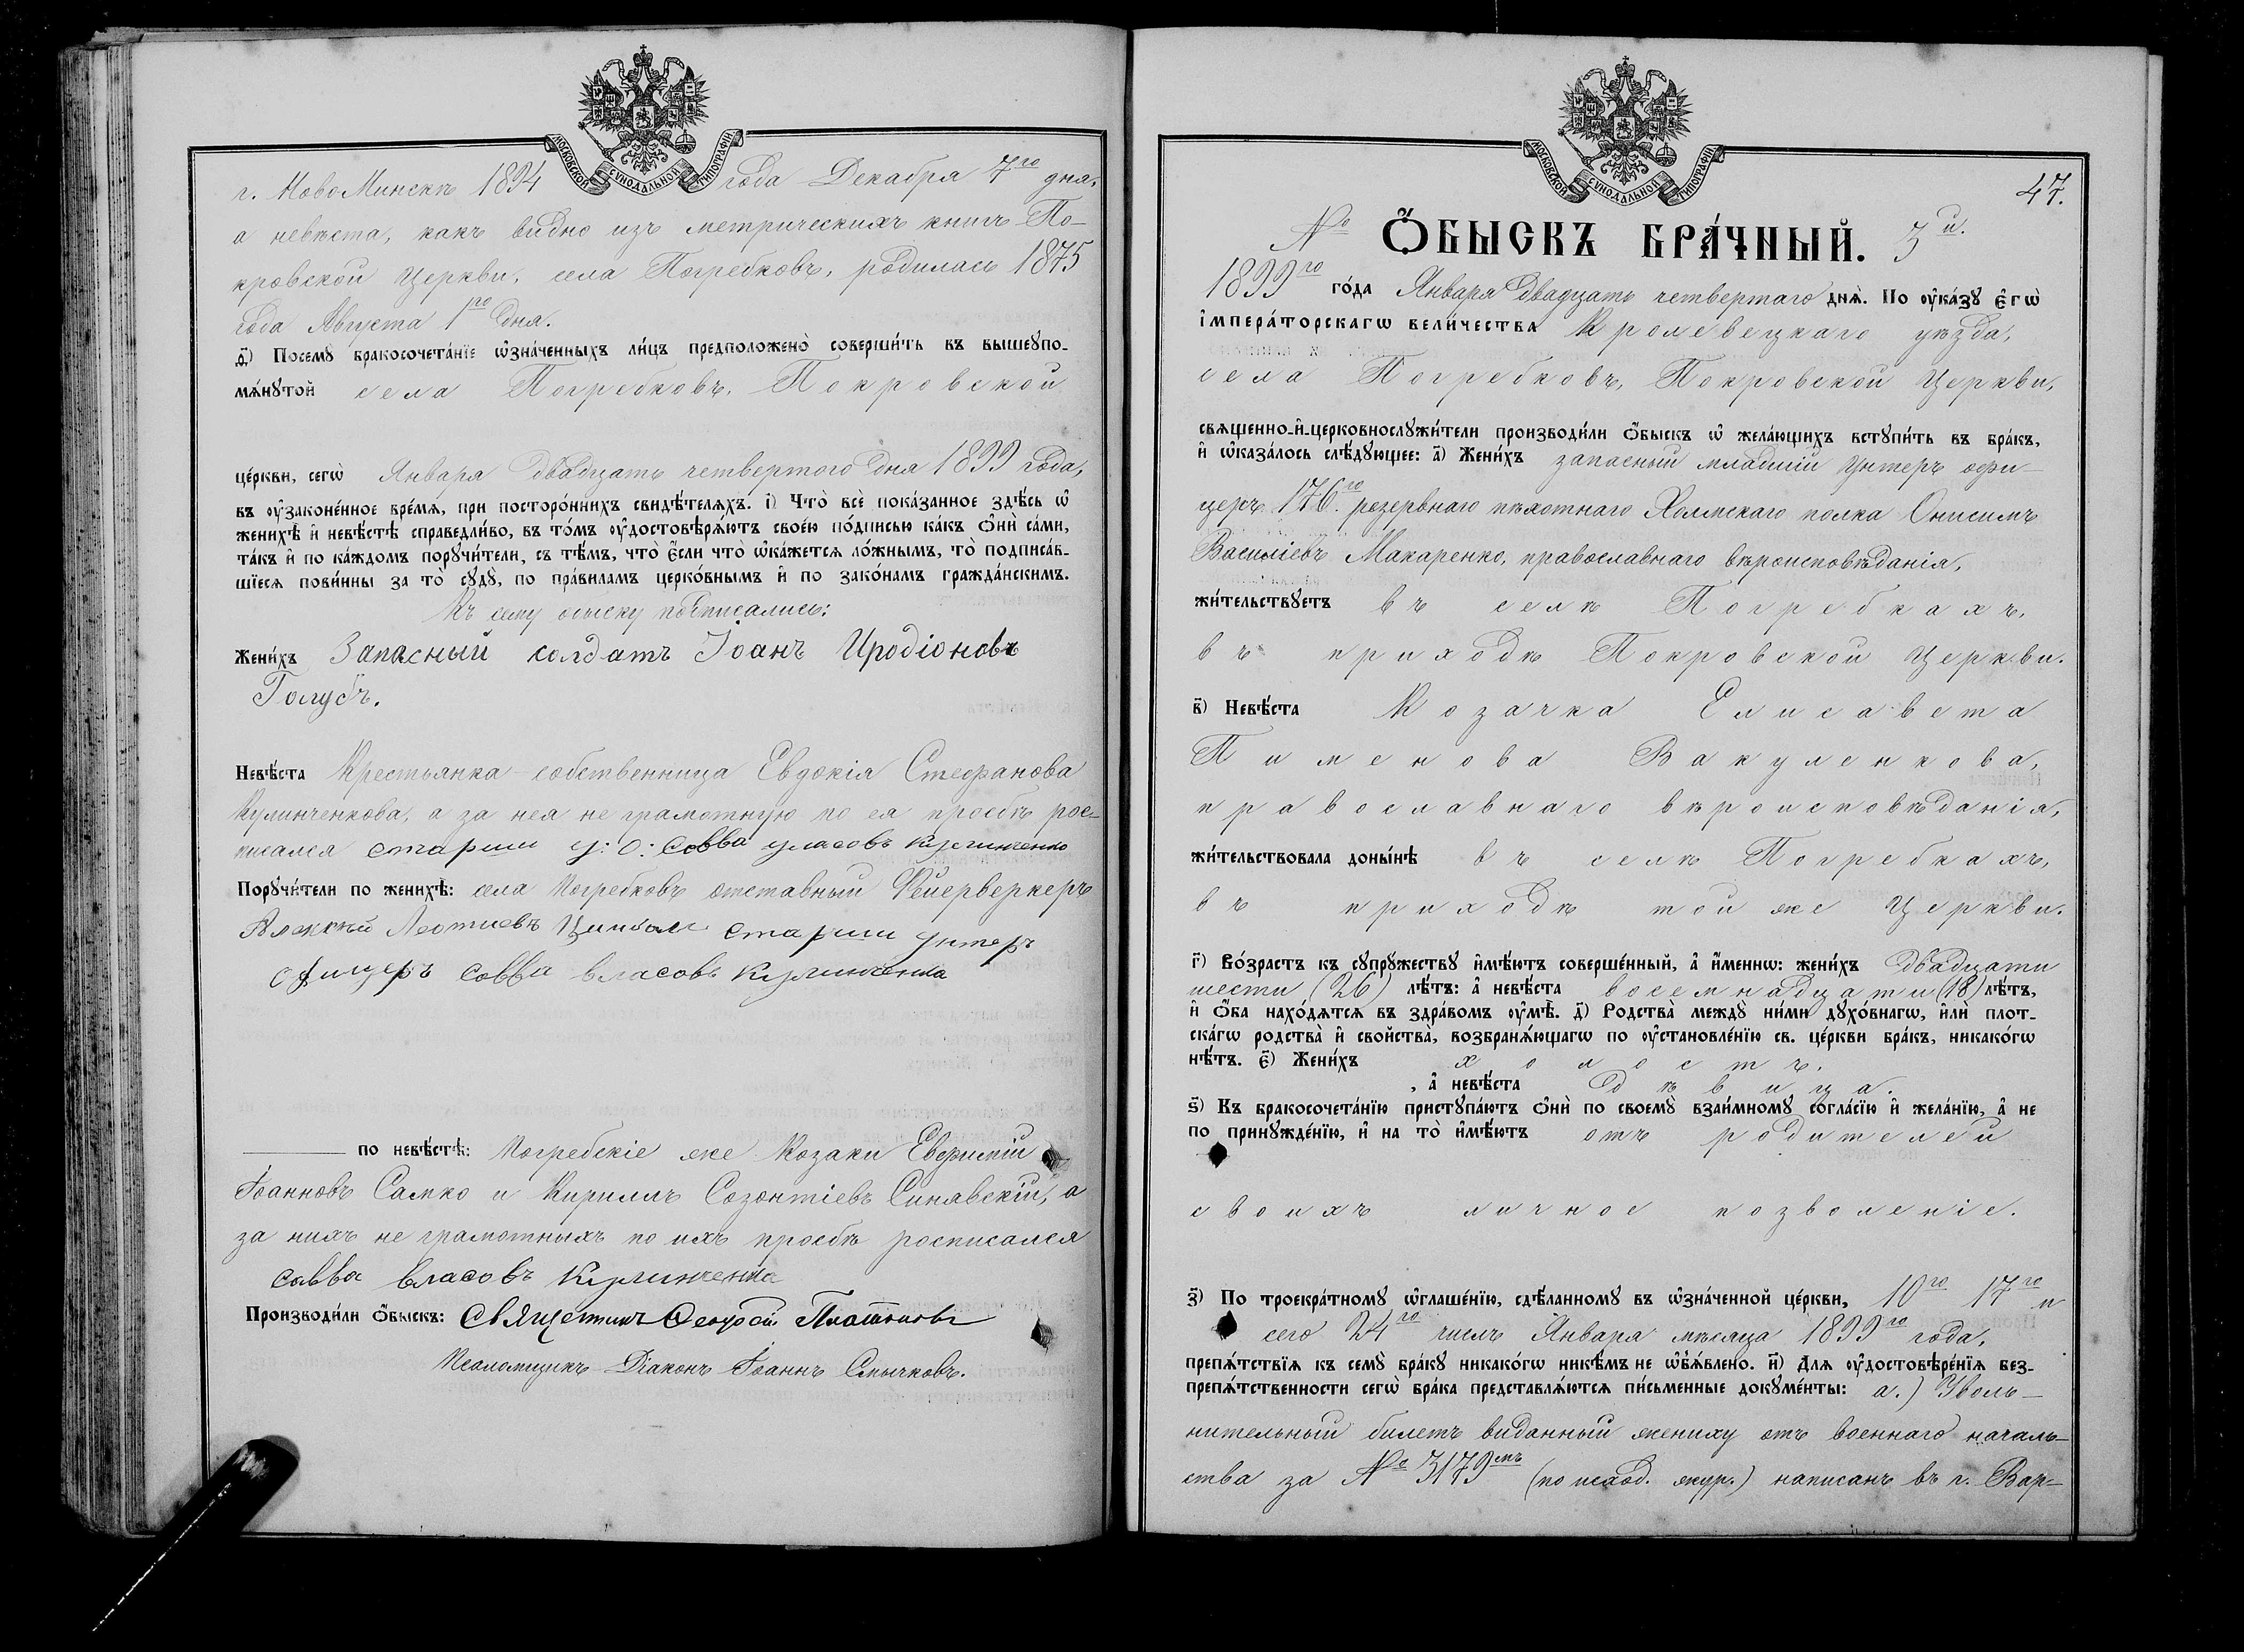 МОСКОВСКОЙ СУНОДАЛЬНОЙ ТИПОГРАФІИ
г. НовоМинскъ 1894 года Декабря 7го дня,
а невѣста, какъ видно изъ метрическихъ книгъ По-
кровской Церкви, села Погребковъ, родилась 1875
года Августа 1го дня.
д҃і) Посемꙋ бракосочета́нїе ѡ҆зна́ченныхъ ли́цъ предположено̀ соверши́ть въ вышеꙋпо-
мѧ́нꙋтой села Погребковъ, Покровской
це́ркви, сегѡ̀ Января двадцать четвертого дня 1899 года,
въ ᲂу҆законе́нное вре́мѧ, при посторо́ннихъ свидѣ́телѧхъ. і҃) Что̀ всѐ пока́занное здѣ́сь ѡ҆
женихѣ̀ и҆ невѣ́стѣ справедли́во, въ то́мъ ᲂу҆достовѣрѧ́ютъ свое́ю по́дписью ка́къ ѻ҆нѝ са́ми,
та́къ и҆ по ка́ждомъ порꙋчи́тели, съ тѣ́мъ, что̀ є҆́сли что̀ ѡ҆ка́жетсѧ ло́жнымъ, то̀ подписа́в-
шїесѧ пови́нны за то̀ сꙋдꙋ̀, по пра́виламъ церко́внымъ и҆ по зако́намъ гражда́нскимъ.
Къ сему обыску подписались:
Жени́хъ Запасный солдатъ Іоанъ Иродіоновъ
Голубъ.
Невѣ́ста Крестьянка-собственница Евдокія Стефанова
Кулинченкова, а за нея не грамотную по ея просьбѣ рос-
писался старши у: о: Савва уласовъ Кулинченко
Порꙋчи́тели по женихѣ̀: села Погребковъ отставный Фейерверкеръ
Алексѣй Леотиевъ старши унтеръ
офицеръ савва власовъ Кулинченка
по невѣ́стѣ: Погребскіе же Козаки Евфимій
Іоанновъ Самко и Кириллъ Созонтіевъ Синявскій, а
за нихъ не грамотныхъ по ихъ просьбѣ росписался
савва власовъ Кулинченка
Производи́ли ѻ҆́быскъ: Священникъ Георгій Платоновъ
Псаломщикъ Діаконъ Іоаннъ Смычковъ.
МОСКОВСКОЙ СУНОДАЛЬНОЙ ТИПОГРАФІИ
47.
№ Ѻ҆́БЫСКЪ БРА́ЧНЫЙ. 3й.
1899го го́да Января двадцать четвертаго днѧ̀. По ᲂу҆ка́зꙋ є҆гѡ̀
і҆мпера́торскагѡ вели́чества Кролевецкаго уѣзда,
села Погребковъ, Покровской Церкви,
свѧщенно-и҆-церковнослꙋжи́тели производи́ли ѻ҆́быскъ ѡ҆ жела́ющихъ встꙋпи́ть въ бра́къ,
и҆ ѡ҆каза́лось слѣ́дꙋющее: а҃) Жени́хъ запасный младшій унтеръ офи-
церъ 176го резервнаго пѣхотнаго Холмскаго полка Онисимъ
Василіевъ Макаренко, православнаго вѣроисповѣданія,
жи́тельствꙋетъ въ селѣ Погребкахъ,
въ приходѣ Покровской Церкви.
в҃) Невѣ́ста Козачка Елисавета
Пименова Вакуленкова,
православнаго вѣроисповѣданія,
жи́тельствовала доны́нѣ въ селѣ Погребкахъ,
въ приходѣ той же Церкви.
г҃) Во́зрастъ къ сꙋпрꙋ́жествꙋ и҆мѣ́ютъ соверше́нный, а҆ и҆́меннѡ: жени́хъ двадцати
шести (26) лѣ́тъ: а҆ невѣ́ста восемнадцати (18) лѣ́тъ,
и҆ ѻ҆́ба нахо́дѧтсѧ въ здра́вомъ ᲂу҆мѣ̀. д҃) Родства̀ междꙋ̀ ни́ми дꙋхо́внагѡ, и҆лѝ плот-
ска́гѡ родства̀ и҆ свойства̀, возбранѧ́ющагѡ по ᲂу҆становле́нїю св. це́ркви бра́къ, никако́гѡ
нѣ́тъ. є҃) Жени́хъ холостъ,
, а҆ невѣ́ста дѣвица.
ѕ҃) Къ бракосочета́нїю пристꙋпа́ютъ ѻ҆нѝ по своемꙋ̀ взаи́мномꙋ согла́сїю и҆ жела́нїю, а҆ не
по принꙋжде́нїю, и҆ на то̀ и҆мѣ́ютъ отъ родителей
своихъ личное позволеніе.
з҃) По троекра́тномꙋ ѡ҆глаше́нїю, сдѣ́ланномꙋ въ ѡ҆зна́ченной це́ркви, 10го 17го и
сего 24го числъ Января мѣсяца 1899го года,
препѧ́тствїѧ къ семꙋ̀ бра́кꙋ никако́гѡ никѣ́мъ не ѡ҆б̾ѧ́влено. и҃) Длѧ ᲂу҆достовѣре́нїѧ без-
препѧ́тственности сегѡ̀ бра́ка представлѧ́ютсѧ пи́сьменные докꙋме́нты: а.) Уволь-
нительный билетъ виданный жениху отъ военнаго началь-
ства за № 3179мъ (по исход. жур.) написанъ въ г. Вар-